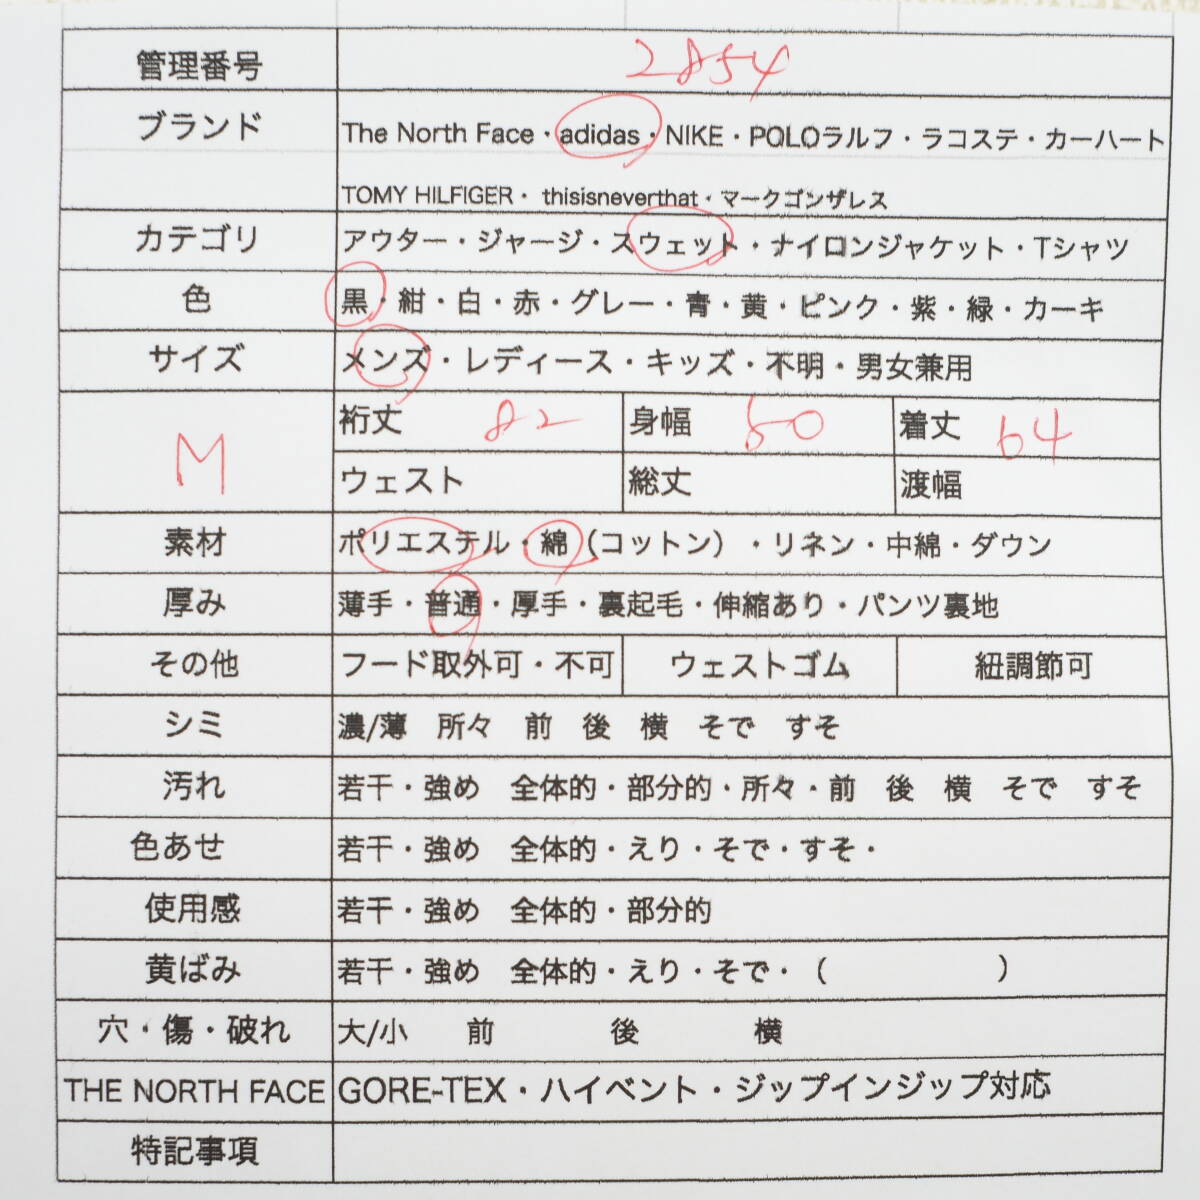 管理番号 2854
ブランド The North Face・adidas・NIKE・POLOラルフ・ラコステ・カーハート
TOMY HILFIGER・ thisisneverthat・マークゴンザレス
カテゴリ アウター・ジャージ・スウェット・ナイロンジャケット・Tシャツ
色 黒・紺・白・赤・グレー・青・黄・ピンク・紫・緑・カーキ
サイズ メンズ・レディース・キッズ・不明・男女兼用
M 裄丈 82 身幅 50 着丈 64
ウェスト 総丈 渡幅
素材 ポリエステル・綿（コットン）・リネン・中綿・ダウン
厚み 薄手・普通・厚手・裏起毛・伸縮あり・パンツ裏地
その他 フード取外可・不可 ウェストゴム 紐調節可
シミ 濃/薄 所々 前 後 横 そで すそ
汚れ 若干・強め 全体的・部分的・所々・前 後 横 そで すそ
色あせ 若干・強め 全体的・えり・そで・すそ・
使用感 若干・強め 全体的・部分的
黄ばみ 若干・強め 全体的・えり・そで・（ ）
穴・傷・破れ 大/小 前 後 横
THE NORTH FACE GORE-TEX・ハイベント・ジップインジップ対応
特記事項